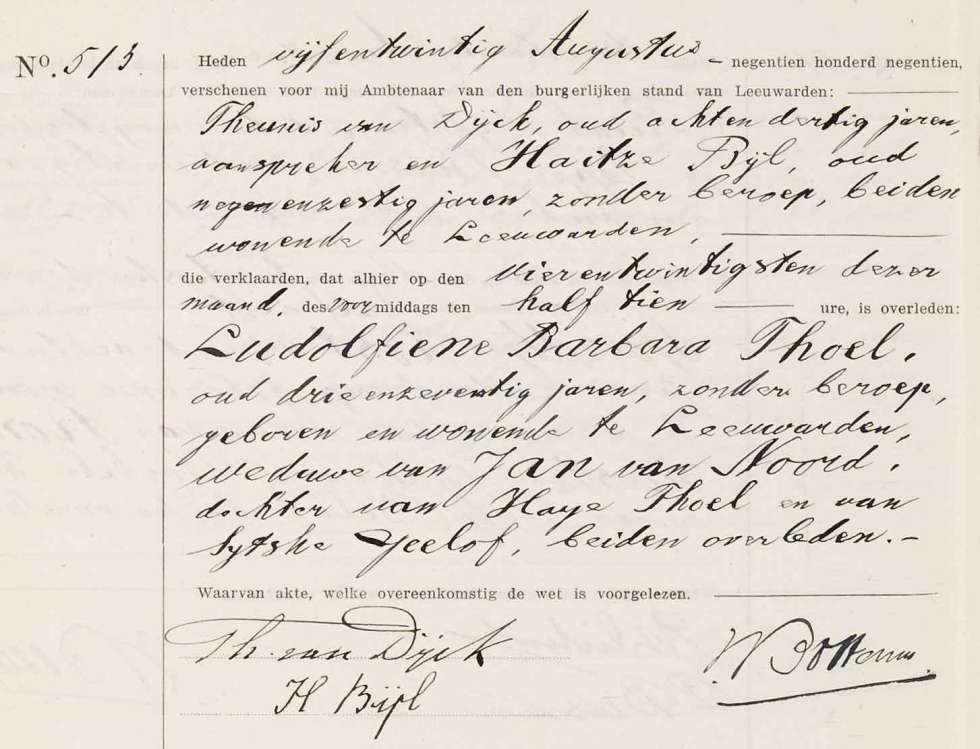 No. 513.
Heden vijfentwintig Augustus - negentien honderd negentien,
verschenen voor mij Ambtenaar van den burgerlijken stand van Leeuwarden:
Theunis van Dijck, oud achtendertig jaren,
aanspreker en Haitze Bijl, oud
negenenzestig jaren, zonder beroep, beiden
wonende te Leeuwarden,
die verklaarden, dat alhier op den vierentwintigsten dezer
maand, des voormiddags ten half tien ure, is overleden:
Ludolfiene Barbara Thoel,
oud drieenzeventig jaren, zonder beroep,
geboren en wonende te Leeuwarden,
weduwe van Jan van Noord,
dochter van Haye Thoel en van
Sytske Jeelof, beiden overleden.-
Waarvan akte, welke overeenkomstig de wet is voorgelezen.
Th. van Dijck
H Bijl